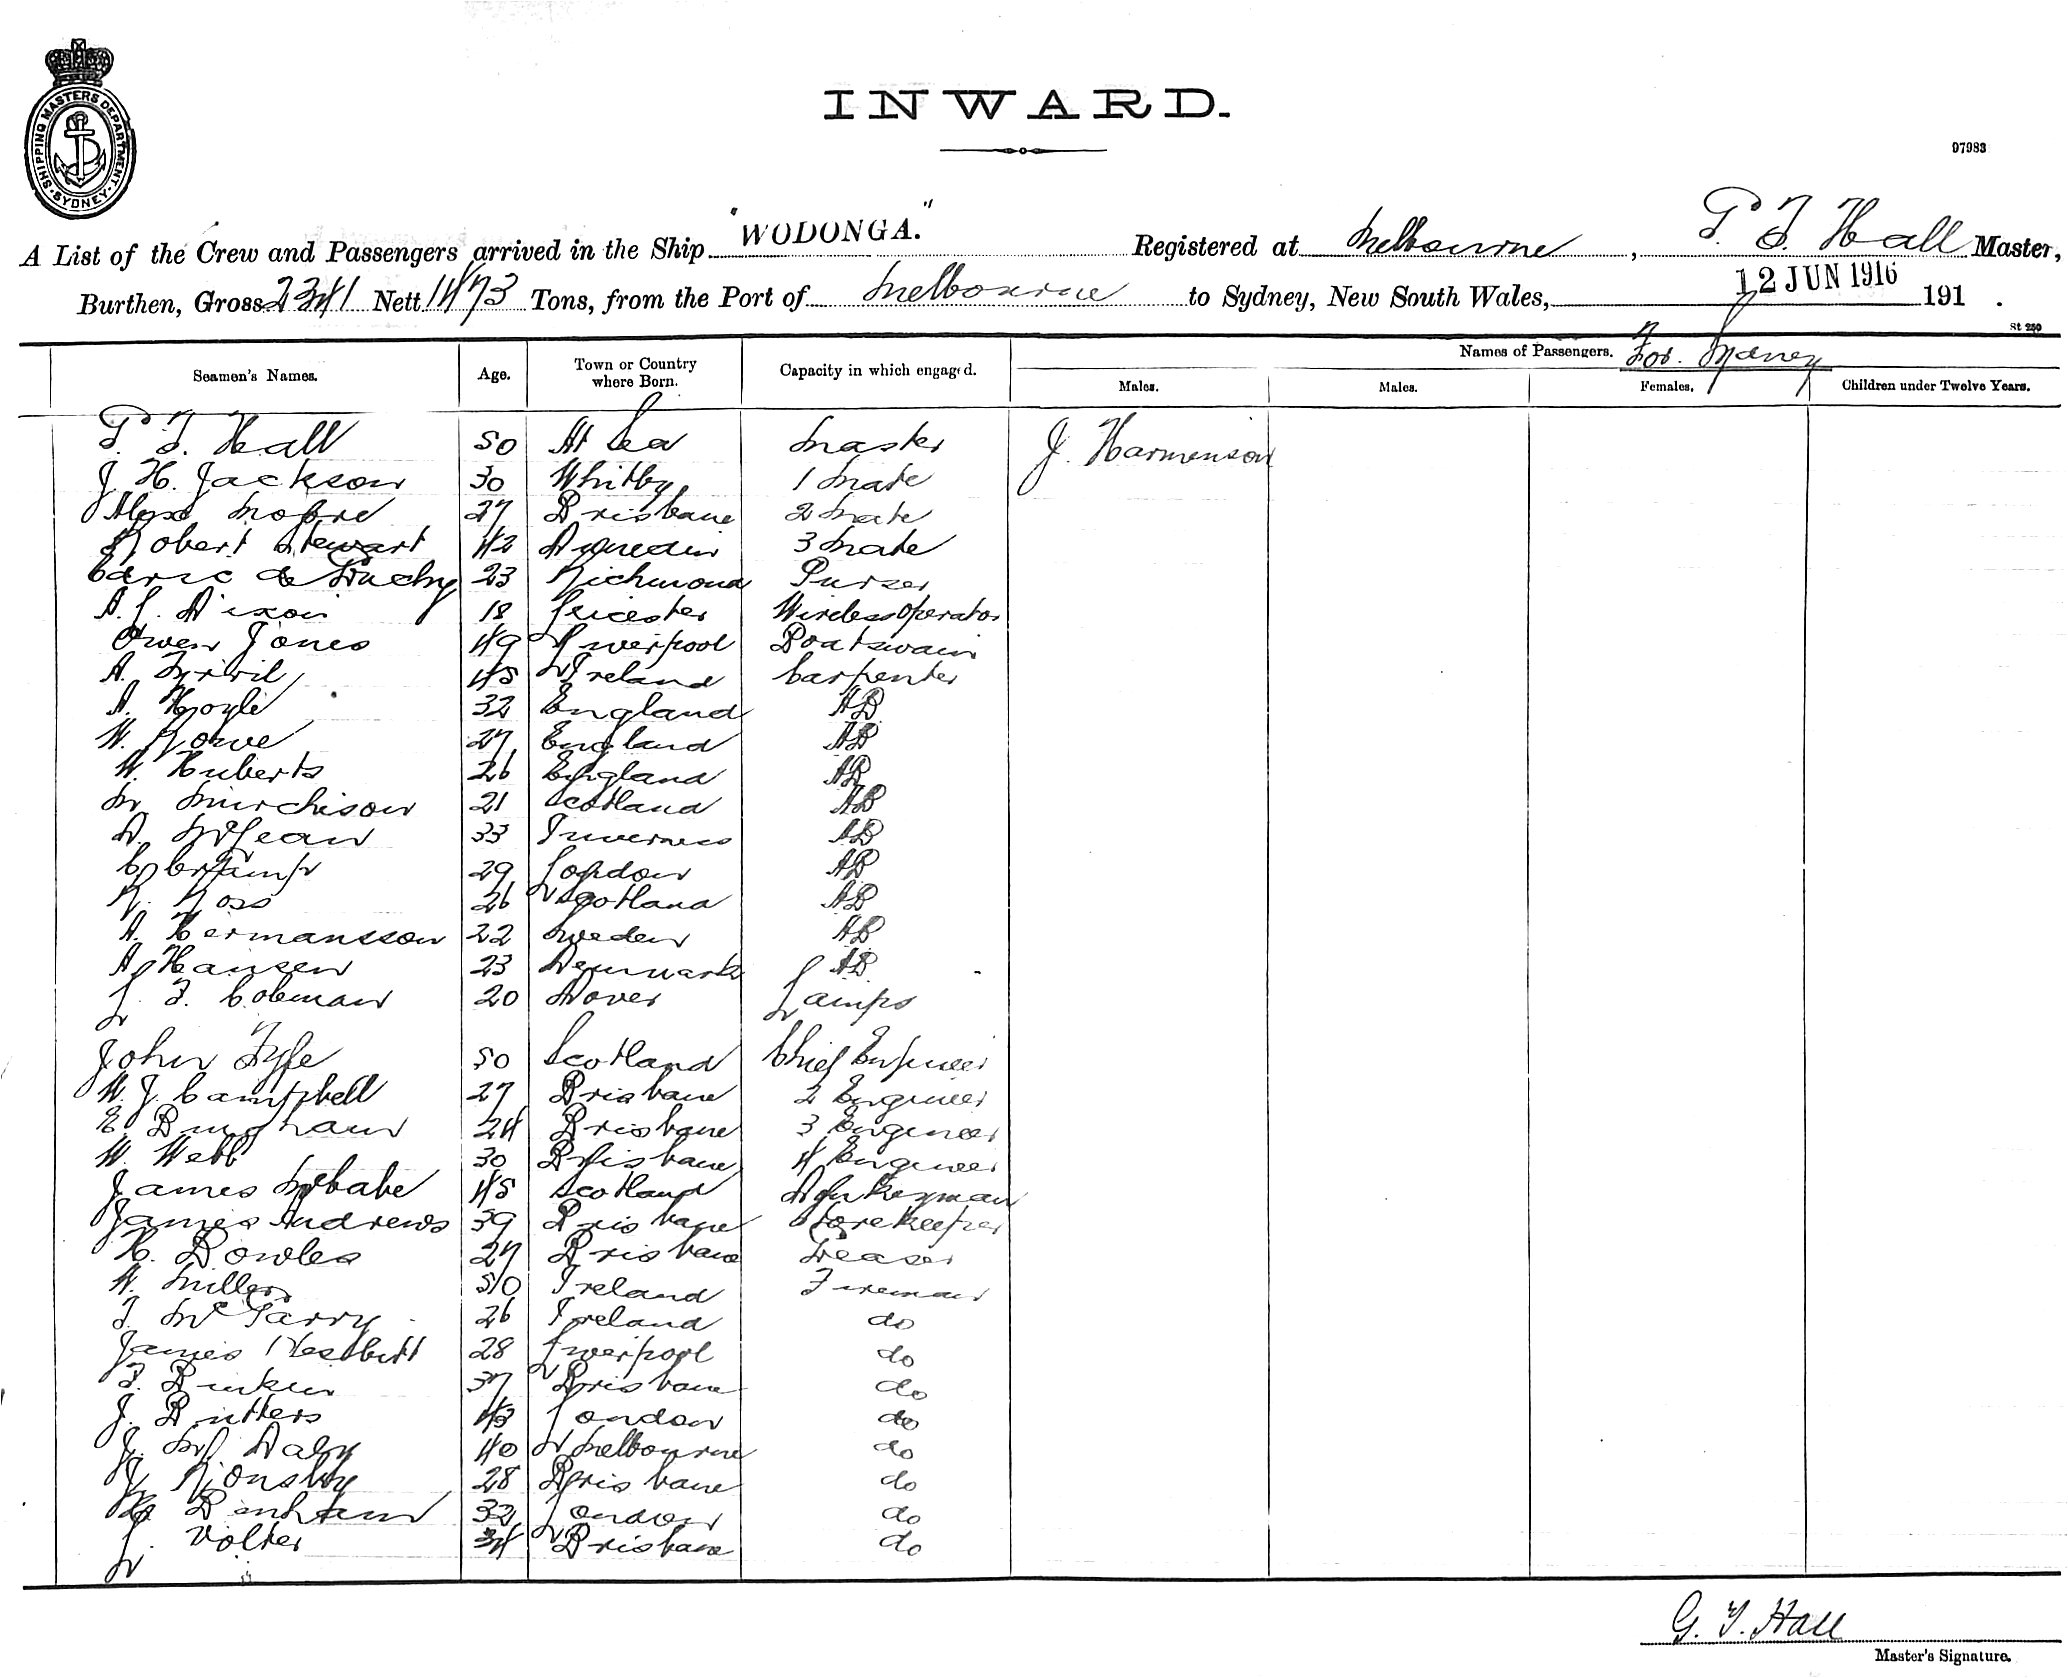 SHIPPING MASTERS DEPARTMENT. SYDNEY
INWARD.
97983
A List of the Crew and Passengers arrived in the Ship "WODONGA." Registered at Melbourne, Hall Master,
Burthen, Gross 2341 Nett 1473 Tons, from the Port of Melbourne to Sydney, New South Wales, 12 JUN 1916 191 .
St 250
Seamen's Names. Age. Town or Country where Born. Capacity in which engaged. Names of Passengers. For Sydney
Males. Males. Females. Children under Twelve Years.
Hall 50 At Sea Master J. Harmenson
J. H. Jackson 30 Whitby 1 Mate
Alex Moore 27 Brisbane 2 Mate
Robert Stewart 42 Dunedin 3 Mate
23 Richmond Purser
A. L. Dixon 18 Leicester Wireless Operator
Owen Jones 49 Liverpool Boatswain
A. 45 Ireland Carpenter
A. Hoyle 32 England AB
W. Rowe 27 England AB
W. Huberts 26 England AB
M Murchison 21 Scotland AB
D. McLean 33 Inverness AB
29 London AB
R. Ross 26 Scotland AB
A. Hermansson 22 Sweden AB
A Hansen 23 Denmark AB
L. F. Coleman 20 Dover Lamps
John Fyfe 50 Scotland Chief Engineer
W. J. Campbell 27 Brisbane 2 Engineer
E Bingham 24 Brisbane 3 Engineer
W. Webb 30 Brisbane 4 Engineer
James McCabe 45 Scotland Donkeyman
James Andrews 39 Brisbane Storekeeper
H. Bowles 27 Brisbane Greaser
W. Miller 50 Ireland Fireman
T. McGarry 26 Ireland do
James Nesbitt 28 Liverpool do
37 Brisbane do
J. Butters 43 London do
J. Daly 40 Melbourne do
J. 28 Brisbane do
32 London do
L. Volter 34 Brisbane do
G. T. Hall
Master's Signature.